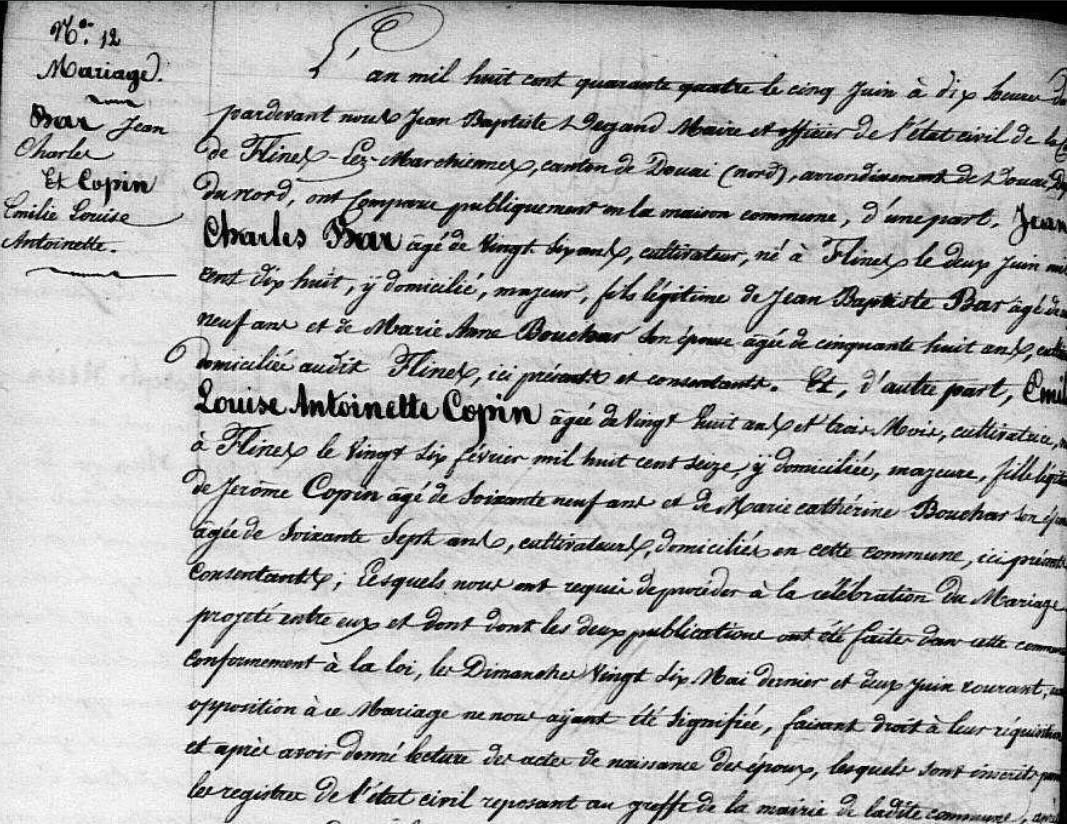 N° 12
Mariage.
Bar Jean
Charles
Et Copin
Emilie Louise
Antoinette.
L'an mil huit cent quarante quatre le cinq Juin à dix heures du
pardevant nous Jean Baptiste Degand Maire et officier de l'état civil de la
de Flines-Lez-Marchiennes, canton de Douai (nord), arrondissement de Douai,
du nord, ont Comparu publiquement en la maison commune, d'une part, Jean
Charles Bar âgé de vingt six ans, cultivateur, né à Flines le deux Juin mil
cent dix huit, y domicilié, majeur, fils légitime de Jean Baptiste Bar âgé de
neuf ans et de Marie Anne Bouchar son épouse âgée de cinquante huit ans,
domiciliés audit Flines, ici présents et consentants. Et, d'autre part, Emil
Louise Antoinette Copin âgée de vingt huit ans et trois Mois, cultivatrice,
à Flines le vingt six février mil huit cent seize, y domiciliée, majeure, fille légit
de Jerôme Copin âgé de soixante neuf ans et de Marie cathérine Bouchar son épou
âgée de soixante sept ans, cultivateurs, domiciliés en cette commune, ici présents
consentants, Lesquels nous ont requis de procéder à la célébration du Mariage
projeté entre eux et dont dont les deux publications ont été faites dans cette commun
conformement à la loi, les Dimanches vingt six Mai dernier et deux Juin courant,
opposition à ce Mariage ne nous ayant été signifiée, faisant droit à leur réquisition
et après avoir donné lecture des actes de naissance des époux, lesquels sont inscrits
les registres de l'état civil reposant au greffe de la mairie de ladite commune,